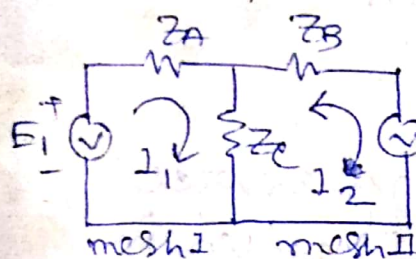 ZA ZB
+
E1
-
I1 Zc I2
mesh I mesh II